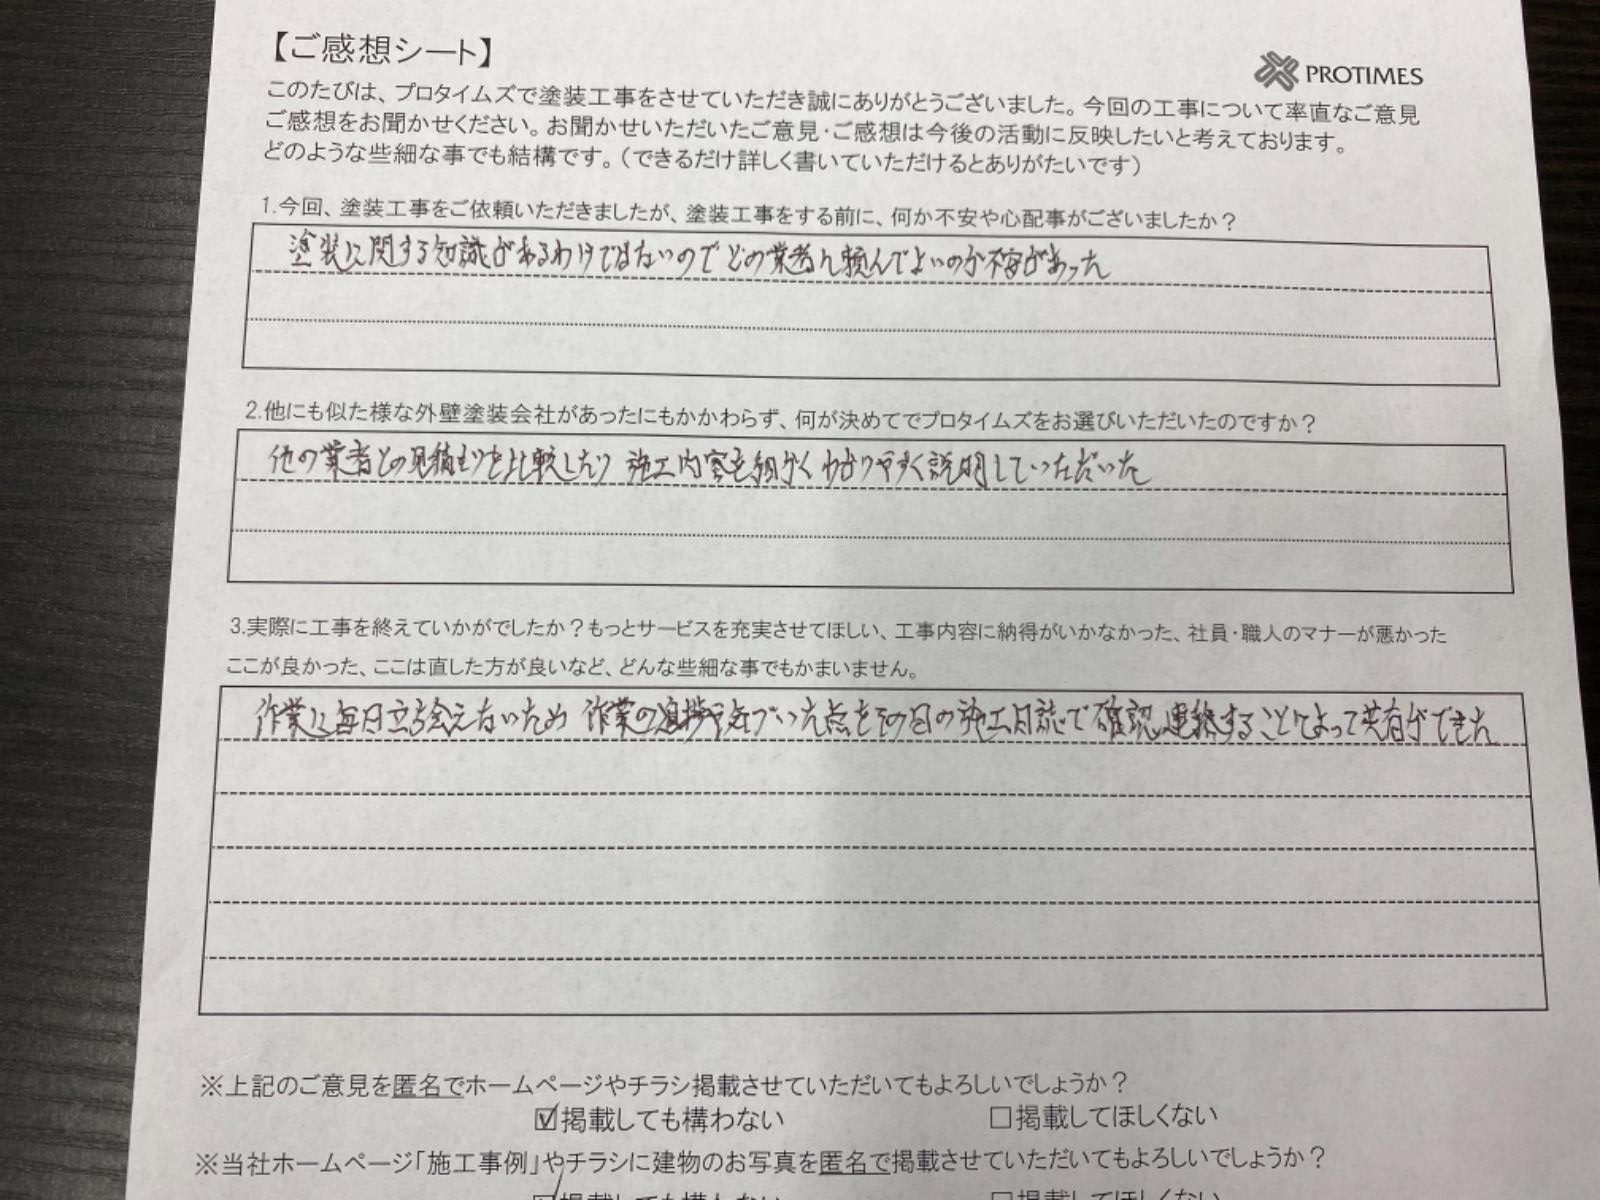 【ご感想シート】
PROTIMES
このたびは、プロタイムズで塗装工事をさせていただき誠にありがとうございました。今回の工事について率直なご意見
ご感想をお聞かせください。お聞かせいただいたご意見・ご感想は今後の活動に反映したいと考えております。
どのような些細な事でも結構です。（できるだけ詳しく書いていただけるとありがたいです）
1.今回、塗装工事をご依頼いただきましたが、塗装工事をする前に、何か不安や心配事がございましたか？
塗装に関する知識があるわけではないのでどの業者に頼んでよいのか不安があった
2.他にも似た様な外壁塗装会社があったにもかかわらず、何が決めてでプロタイムズをお選びいただいたのですか？
他の業者との見積もりを比較したり 施工内容を細かくわかりやすく説明していっただいた
3.実際に工事を終えていかがでしたか？もっとサービスを充実させてほしい、工事内容に納得がいかなかった、社員・職人のマナーが悪かった
ここが良かった、ここは直した方が良いなど、どんな些細な事でもかまいません。
作業に毎日立ち会えないため 作業の進捗や気づいた点をその日の施工日誌で確認、連絡することによって共有ができた
※上記のご意見を匿名でホームページやチラシ掲載させていただいてもよろしいでしょうか？
☑掲載しても構わない □掲載してほしくない
※当社ホームページ「施工事例」やチラシに建物のお写真を匿名で掲載させていただいてもよろしいでしょうか？
☑掲載しても構わない □掲載してほしくない